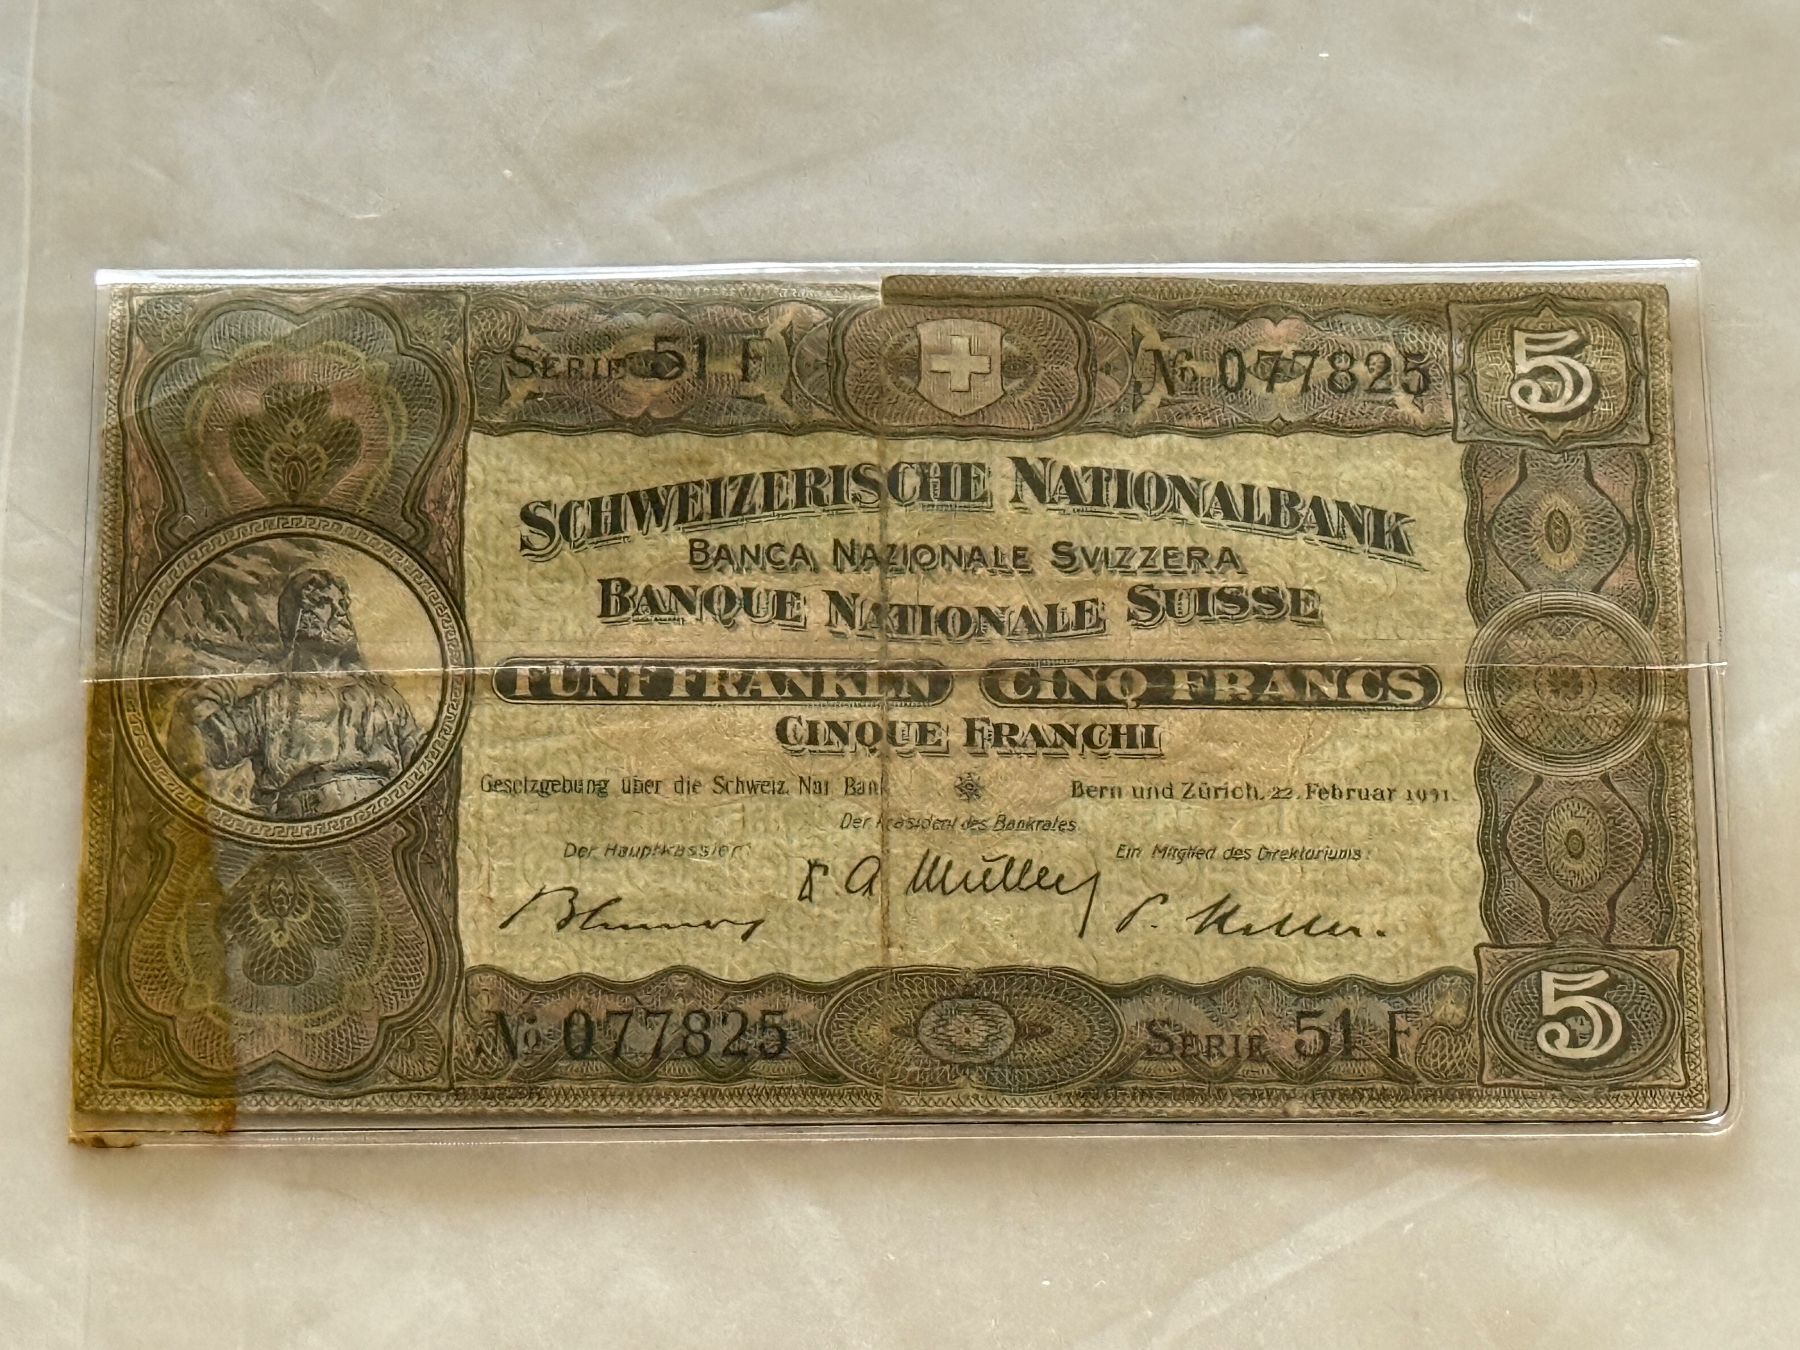 SERIE 51 F
No 077825
5
SCHWEIZERISCHE NATIONALBANK
BANCA NAZIONALE SVIZZERA
BANQUE NATIONALE SUISSE
FÜNF FRANKEN CINQ FRANCS
CINQUE FRANCHI
Gesetzgebung über die Schweiz. Nat Bank
Bern und Zürich, 22. Februar
Der Präsident des Bankrates
Der Hauptkassier:
Ein Mitglied des Direktoriums:
Dr A Müller
No 077825
SERIE 51 F
5